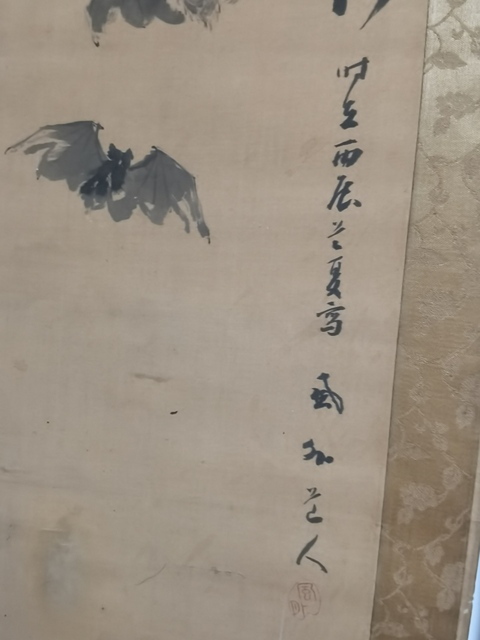 時在丙辰之夏寫 風外道人